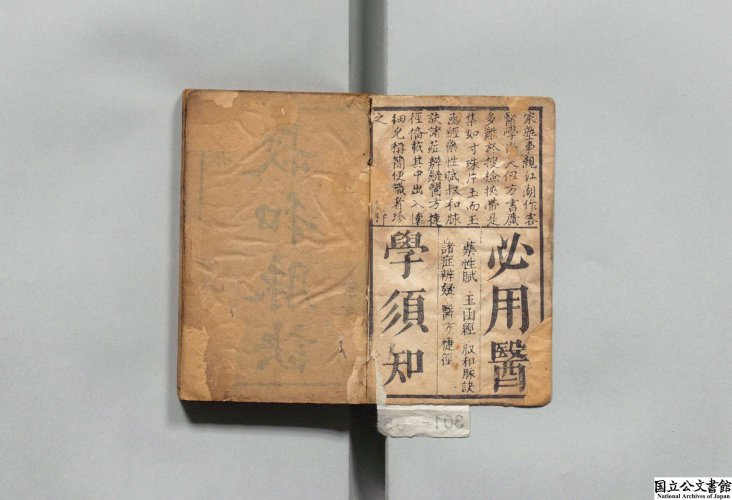 家庭事親江湖作客
醫學尚矣但方書廣
多難於搜檢挾帶是
集如寸珠片玉而玉
函經藥性賦叔和脉
訣諸症辨疑醫方捷
徑備載其中出入
細允稱簡便識者珍
之
必用醫
藥性賦 玉函經 叔和脉訣
諸症辨疑 醫方捷徑
學須知
叔和脉訣
301-
国立公文書館
National Archives of Japan